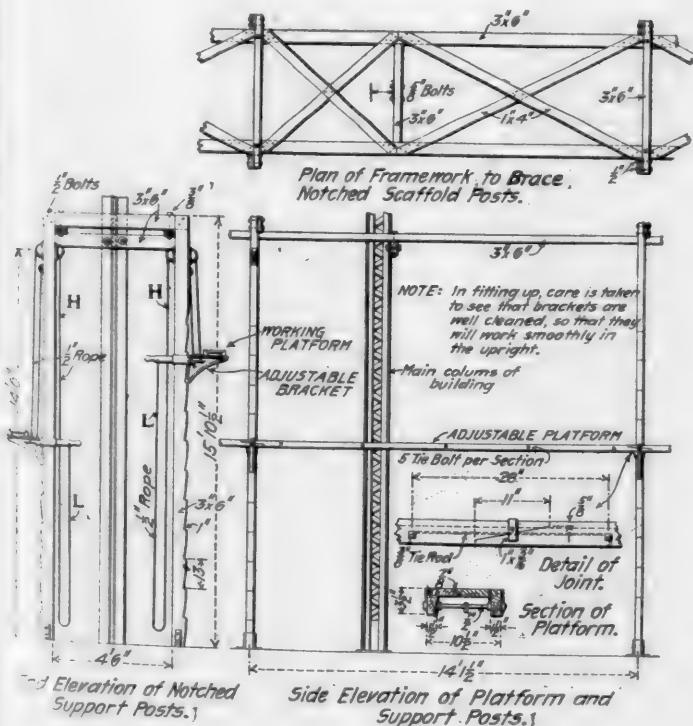 3"x6"
5/8" Bolts
3"x6"
1"x4"
3"x6"
1/2"
Plan of Framework to Brace
Notched Scaffold Posts.
1/2" Bolts
3"x6"
3/8"
H
H
1/2" Rope
14'0"
WORKING
PLATFORM
ADJUSTABLE
BRACKET
L
L
1/2" Rope
15'10 1/2"
3"x6"
1"
4'6"
Elevation of Notched
Support Posts.
3"x6"
NOTE: In fitting up, care is taken
to see that brackets are
well cleaned, so that they
will work smoothly in
the upright.
Main colums of
building
ADJUSTABLE PLATFORM
5 Tie Bolt per Section
28"
11"
5/8"
Tie Rod
1"x 3/16"
Detail of
Joint.
Section of
Platform.
10 1/2"
14'1 1/2"
Side Elevation of Platform and
Support Posts.